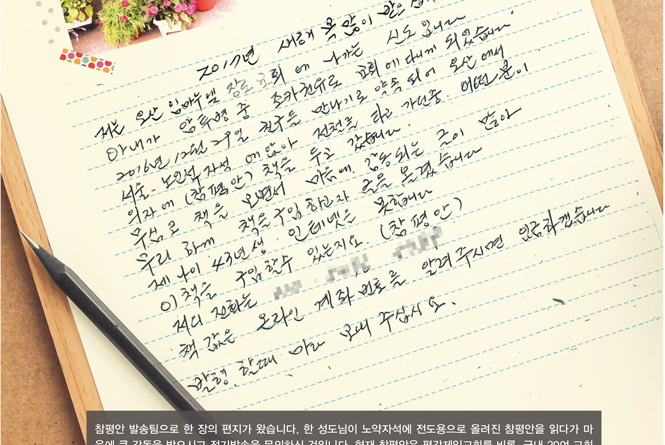 2017년 새해 복 많이 받으십시요
저는 오산 임마누엘 장로교회에 나가는 신도입니다
아내가 암투병 중 조카권유로 교회에 다니게 되었습니다
2016년 12월 29일 친구를 만나기로 약속되어 오산에서
서울 노인석 자석에 앉아 전철을 타고 가던중 어떤분이
의자에 (참평안) 책을 두고 갔습니다.
무심코 책을 보면서 마음에 감동되는 글이 많아
우리 하께 책을 구입하고자 글을 올렸습니다
제 나이 43년생. 인테넷을 못합니다
이책을 구입할수 있는지요. (참평안)
저의 전화는
책값은 온라인 계좌 번호를 알려 주시면 입금하겠습니다
발행 할때 마다 보내 주십시요.
참평안 발송팀으로 한 장의 편지가 왔습니다. 한 성도님이 노약자석에 전도용으로 올려진 참평안을 읽다가 마
음에 큰 감동을 받으시고 정기발송을 문의하신 것입니다. 현재 참평안은 평강제일교회를 비롯, 국내 200여 교회